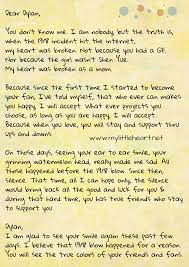 Dear Dylan,
You don't know me. I am nobody, but the truth is,
when the 1918 incident hit the internet,
my heart was broken. Not because you had a GF.
Nor because the girl wasn't like Yue.
My heart was broken as a mom.
Because since the first time I started to become
your fan, I've told myself, that who ever can makes
you happy, I will accept. What ever projects you
choose, as long as you are happy, I will accept.
Because when you love, you will stay and support thru
ups and downs.
www.mylittleheart.net
On those days, seeing your ear to ear smile, your
grinning watermelon head, really made me sad. All
those happened before the 1918 blow. Since then,
silence. That time, all I can hope only, the silence
would bring back all the good and luck for you &
during that hard time, you has true friends who stay
to support you
Dylan,
I am glad to see your smile again these past few
days. I believe that 1918 blow happened for a reason.
You will see the true colors of your friends and fans.